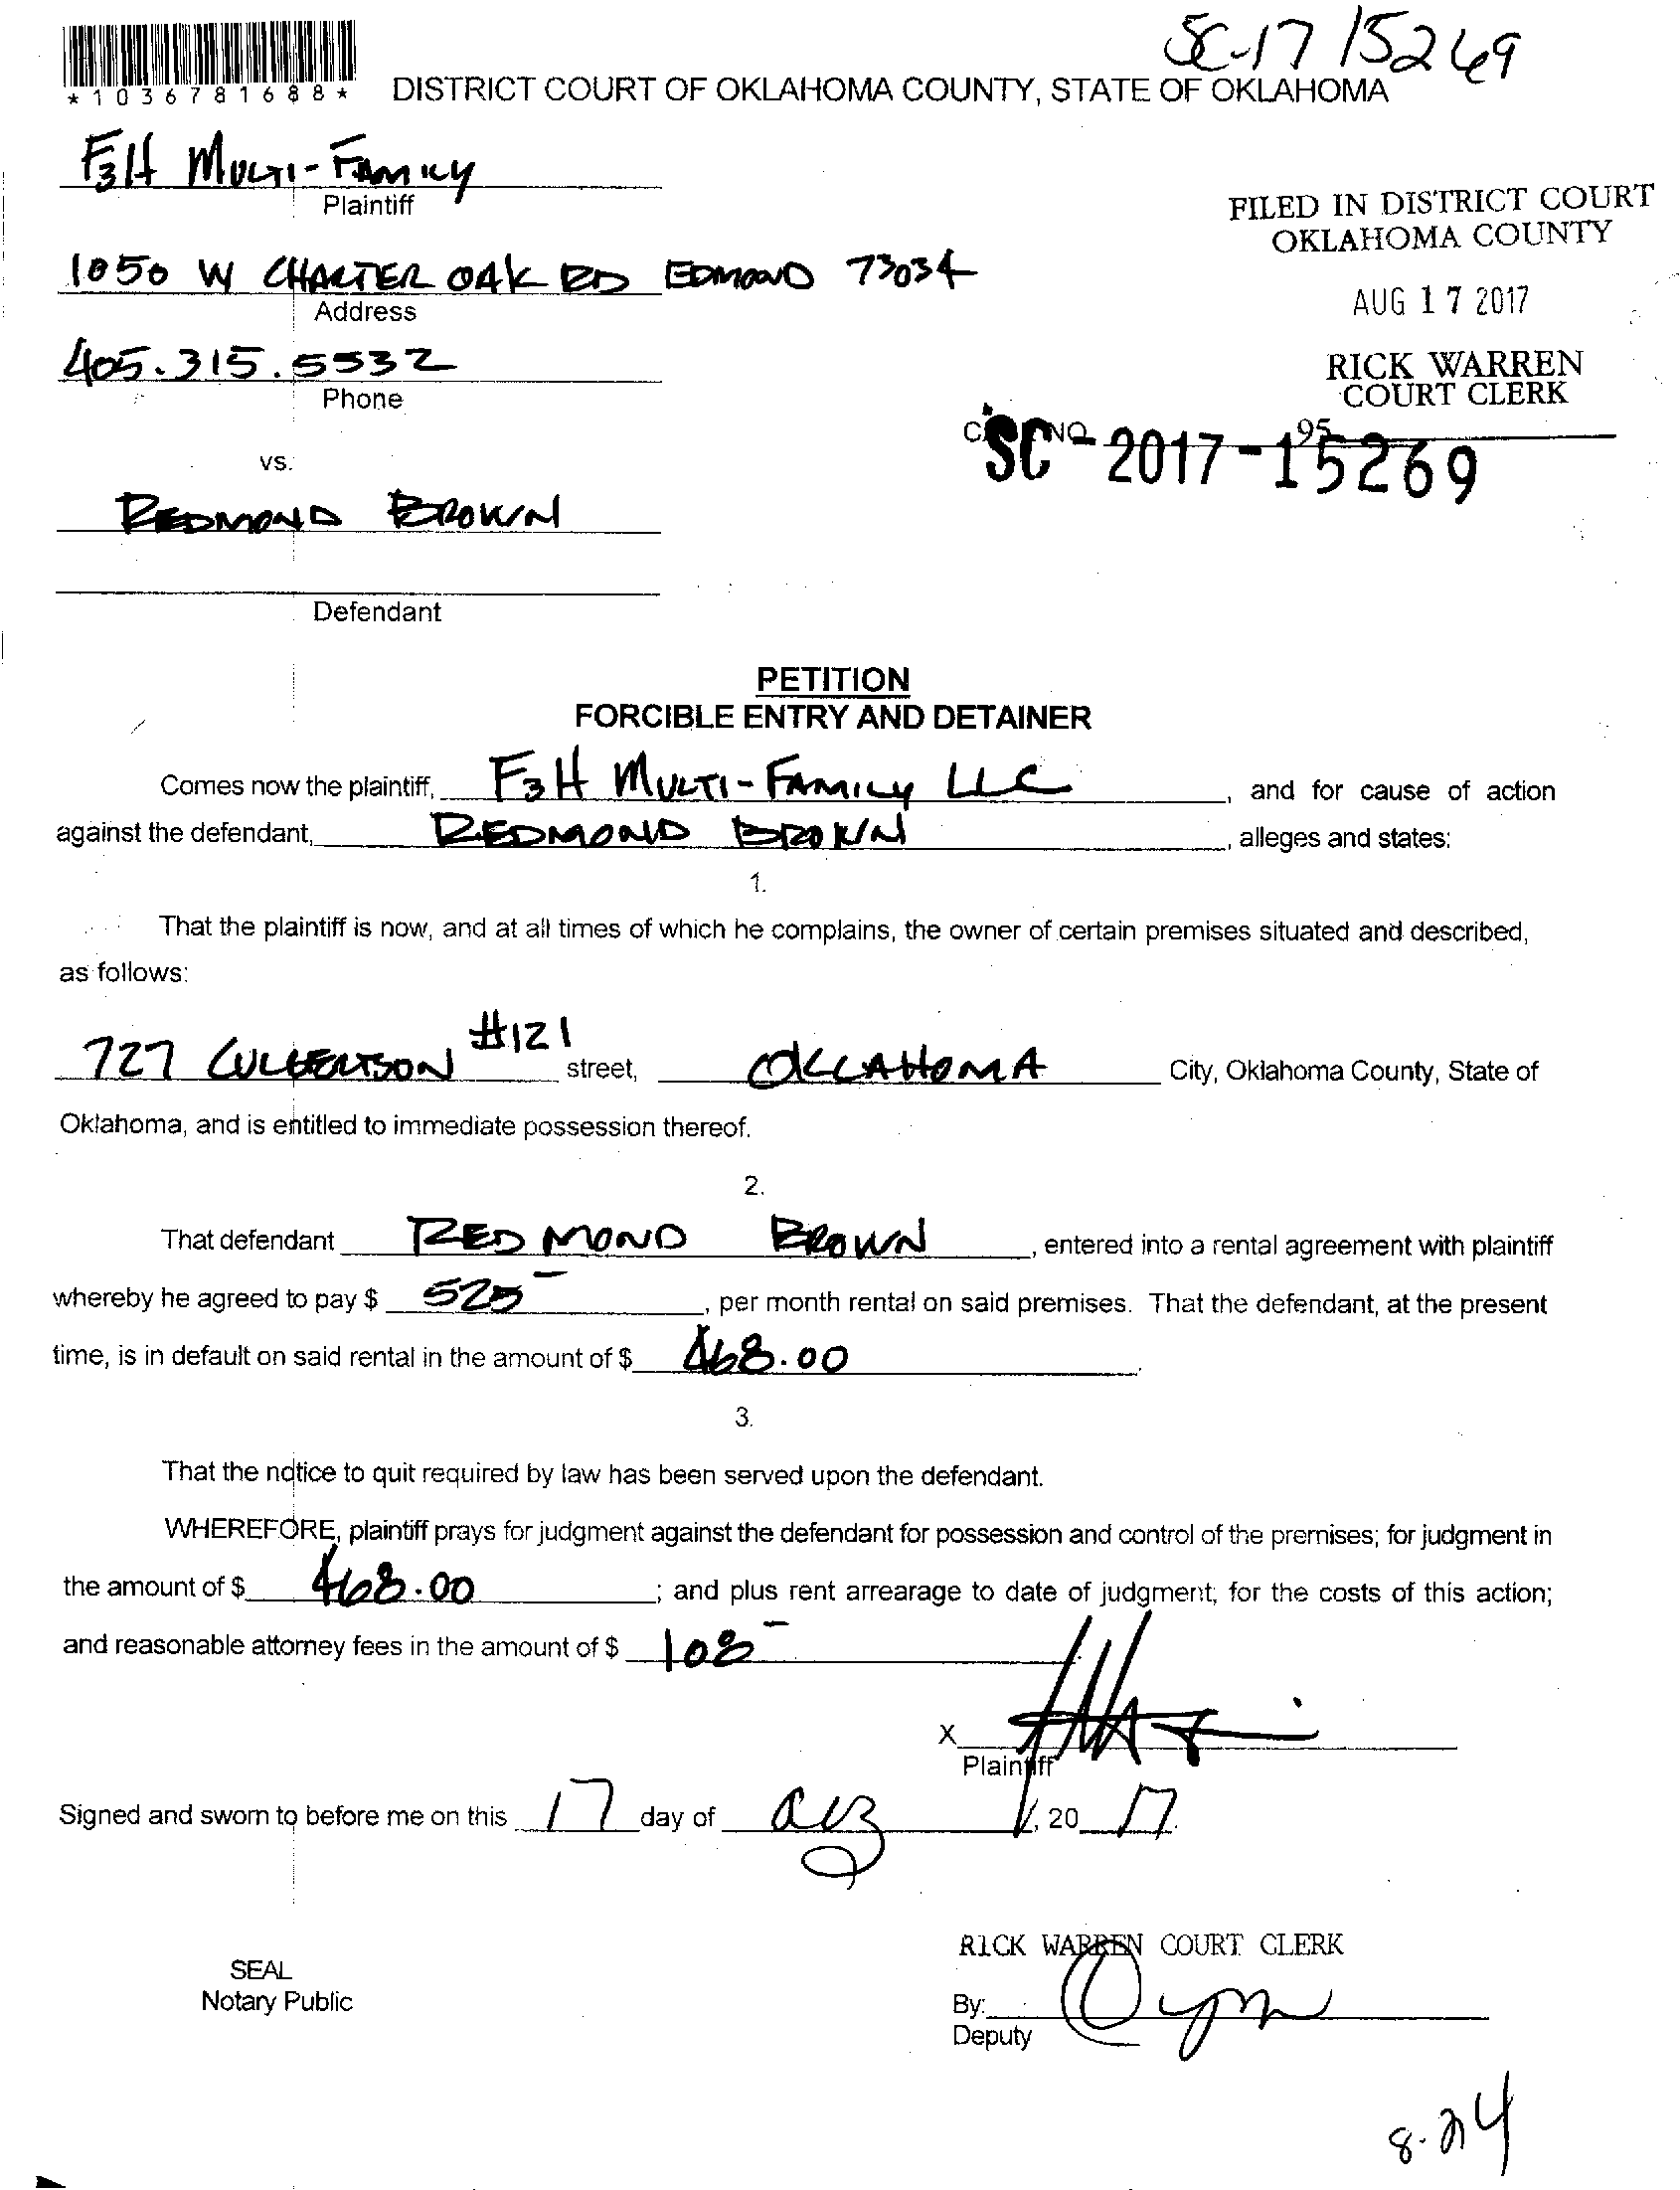 SC-17 15269
*1036781688*
DISTRICT COURT OF OKLAHOMA COUNTY, STATE OF OKLAHOMA
F3H MULTI-FAMILY
Plaintiff
FILED IN DISTRICT COURT
OKLAHOMA COUNTY
1050 W CHARTER OAK RD EDMOND 73034
Address
AUG 17 2017
405.315.5532
Phone
RICK WARREN
COURT CLERK
SC-2017-15269
vs.
REDMOND BROWN
Defendant
PETITION
FORCIBLE ENTRY AND DETAINER
Comes now the plaintiff, F3H MULTI-FAMILY LLC, and for cause of action
against the defendant, REDMOND BROWN, alleges and states:
1.
That the plaintiff is now, and at all times of which he complains, the owner of certain premises situated and described,
as follows:
727 CULBERTSON #121 street, OKLAHOMA City, Oklahoma County, State of
Oklahoma, and is entitled to immediate possession thereof.
2.
That defendant REDMOND BROWN, entered into a rental agreement with plaintiff
whereby he agreed to pay $ 525-, per month rental on said premises. That the defendant, at the present
time, is in default on said rental in the amount of $ 468.00.
3.
That the notice to quit required by law has been served upon the defendant.
WHEREFORE, plaintiff prays for judgment against the defendant for possession and control of the premises; for judgment in
the amount of $ 468.00; and plus rent arrearage to date of judgment; for the costs of this action;
and reasonable attorney fees in the amount of $ 108-
X
Plaintiff
Signed and sworn to before me on this 17 day of aug, 20 17.
RICK WARREN COURT CLERK
SEAL
Notary Public
By:
Deputy
8-24